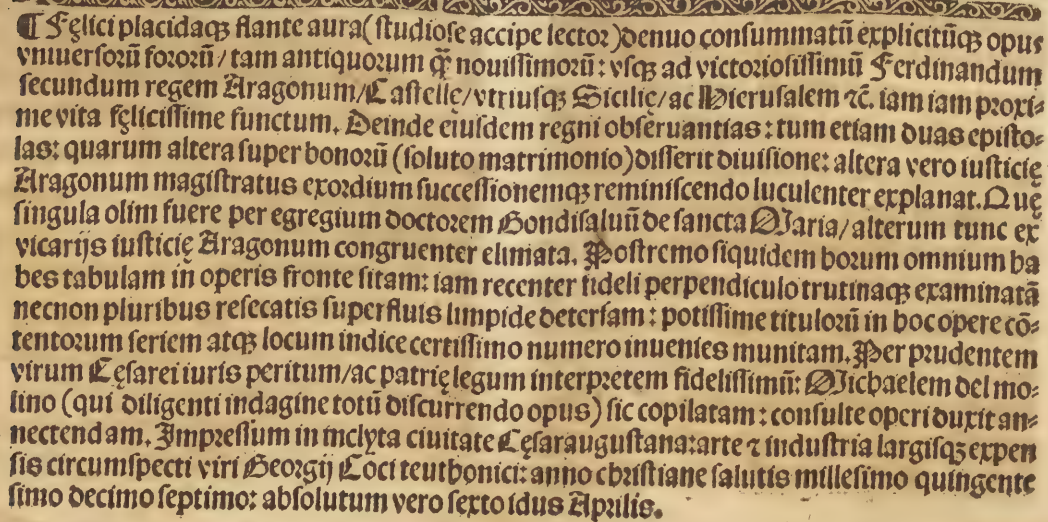 ¶ Fęlici placidaqꝫ flante aura(studiose accipe lector)denuo consummatū explicitūqꝫ opus
vniuersorū fororū/tam antiquorum q̄̈ nouissimorū: vsqꝫ ad victoriosissimū Ferdinandum
secundum regem Aragonum/Castellę/vtriusqꝫ Sicilię/ac Hierusalem ⁊c̄. iam iam proxi⸗
me vita fęlicissime functum. Deinde eiusdem regni obseruantias: tum etiam duas episto⸗
las: quarum altera super bonorū (soluto matrimonio)disserit diuisione: altera vero iusticię
Aragonum magistratus exordium successionemqꝫ reminiscendo luculenter explanat. Quę
singula olim fuere per egregium doctorem Gondisaluū de sancta Maria/alterum tunc ex
vicarijs iusticię Aragonum congruenter elimata. Postremo siquidem horum omnium ha
bes tabulam in operis fronte sitam: iam recenter fideli perpendiculo trutinaqꝫ examinatā
necnon pluribus resecatis superfluis limpide detersam: potissime titulorū in hoc opere cō⸗
tentorum seriem atqꝫ locum indice certissimo numero inuenies munitam. Per prudentem
virum Cęsarei iuris peritum/ac patrię legum interpretem fidelissimū: Michaelem del mo⸗
lino (qui diligenti indagine totū discurrendo opus) sic copilatam: consulte operi duxit an⸗
nectendam. Impressum in inclyta ciuitate Cęsaraugustana: arte ⁊ industria largisqꝫ expen
sis circumspecti viri Georgij Coci teuthonici: anno christiane salutis millesimo quingente
simo decimo septimo: absolutum vero sexto idus Aprilis.